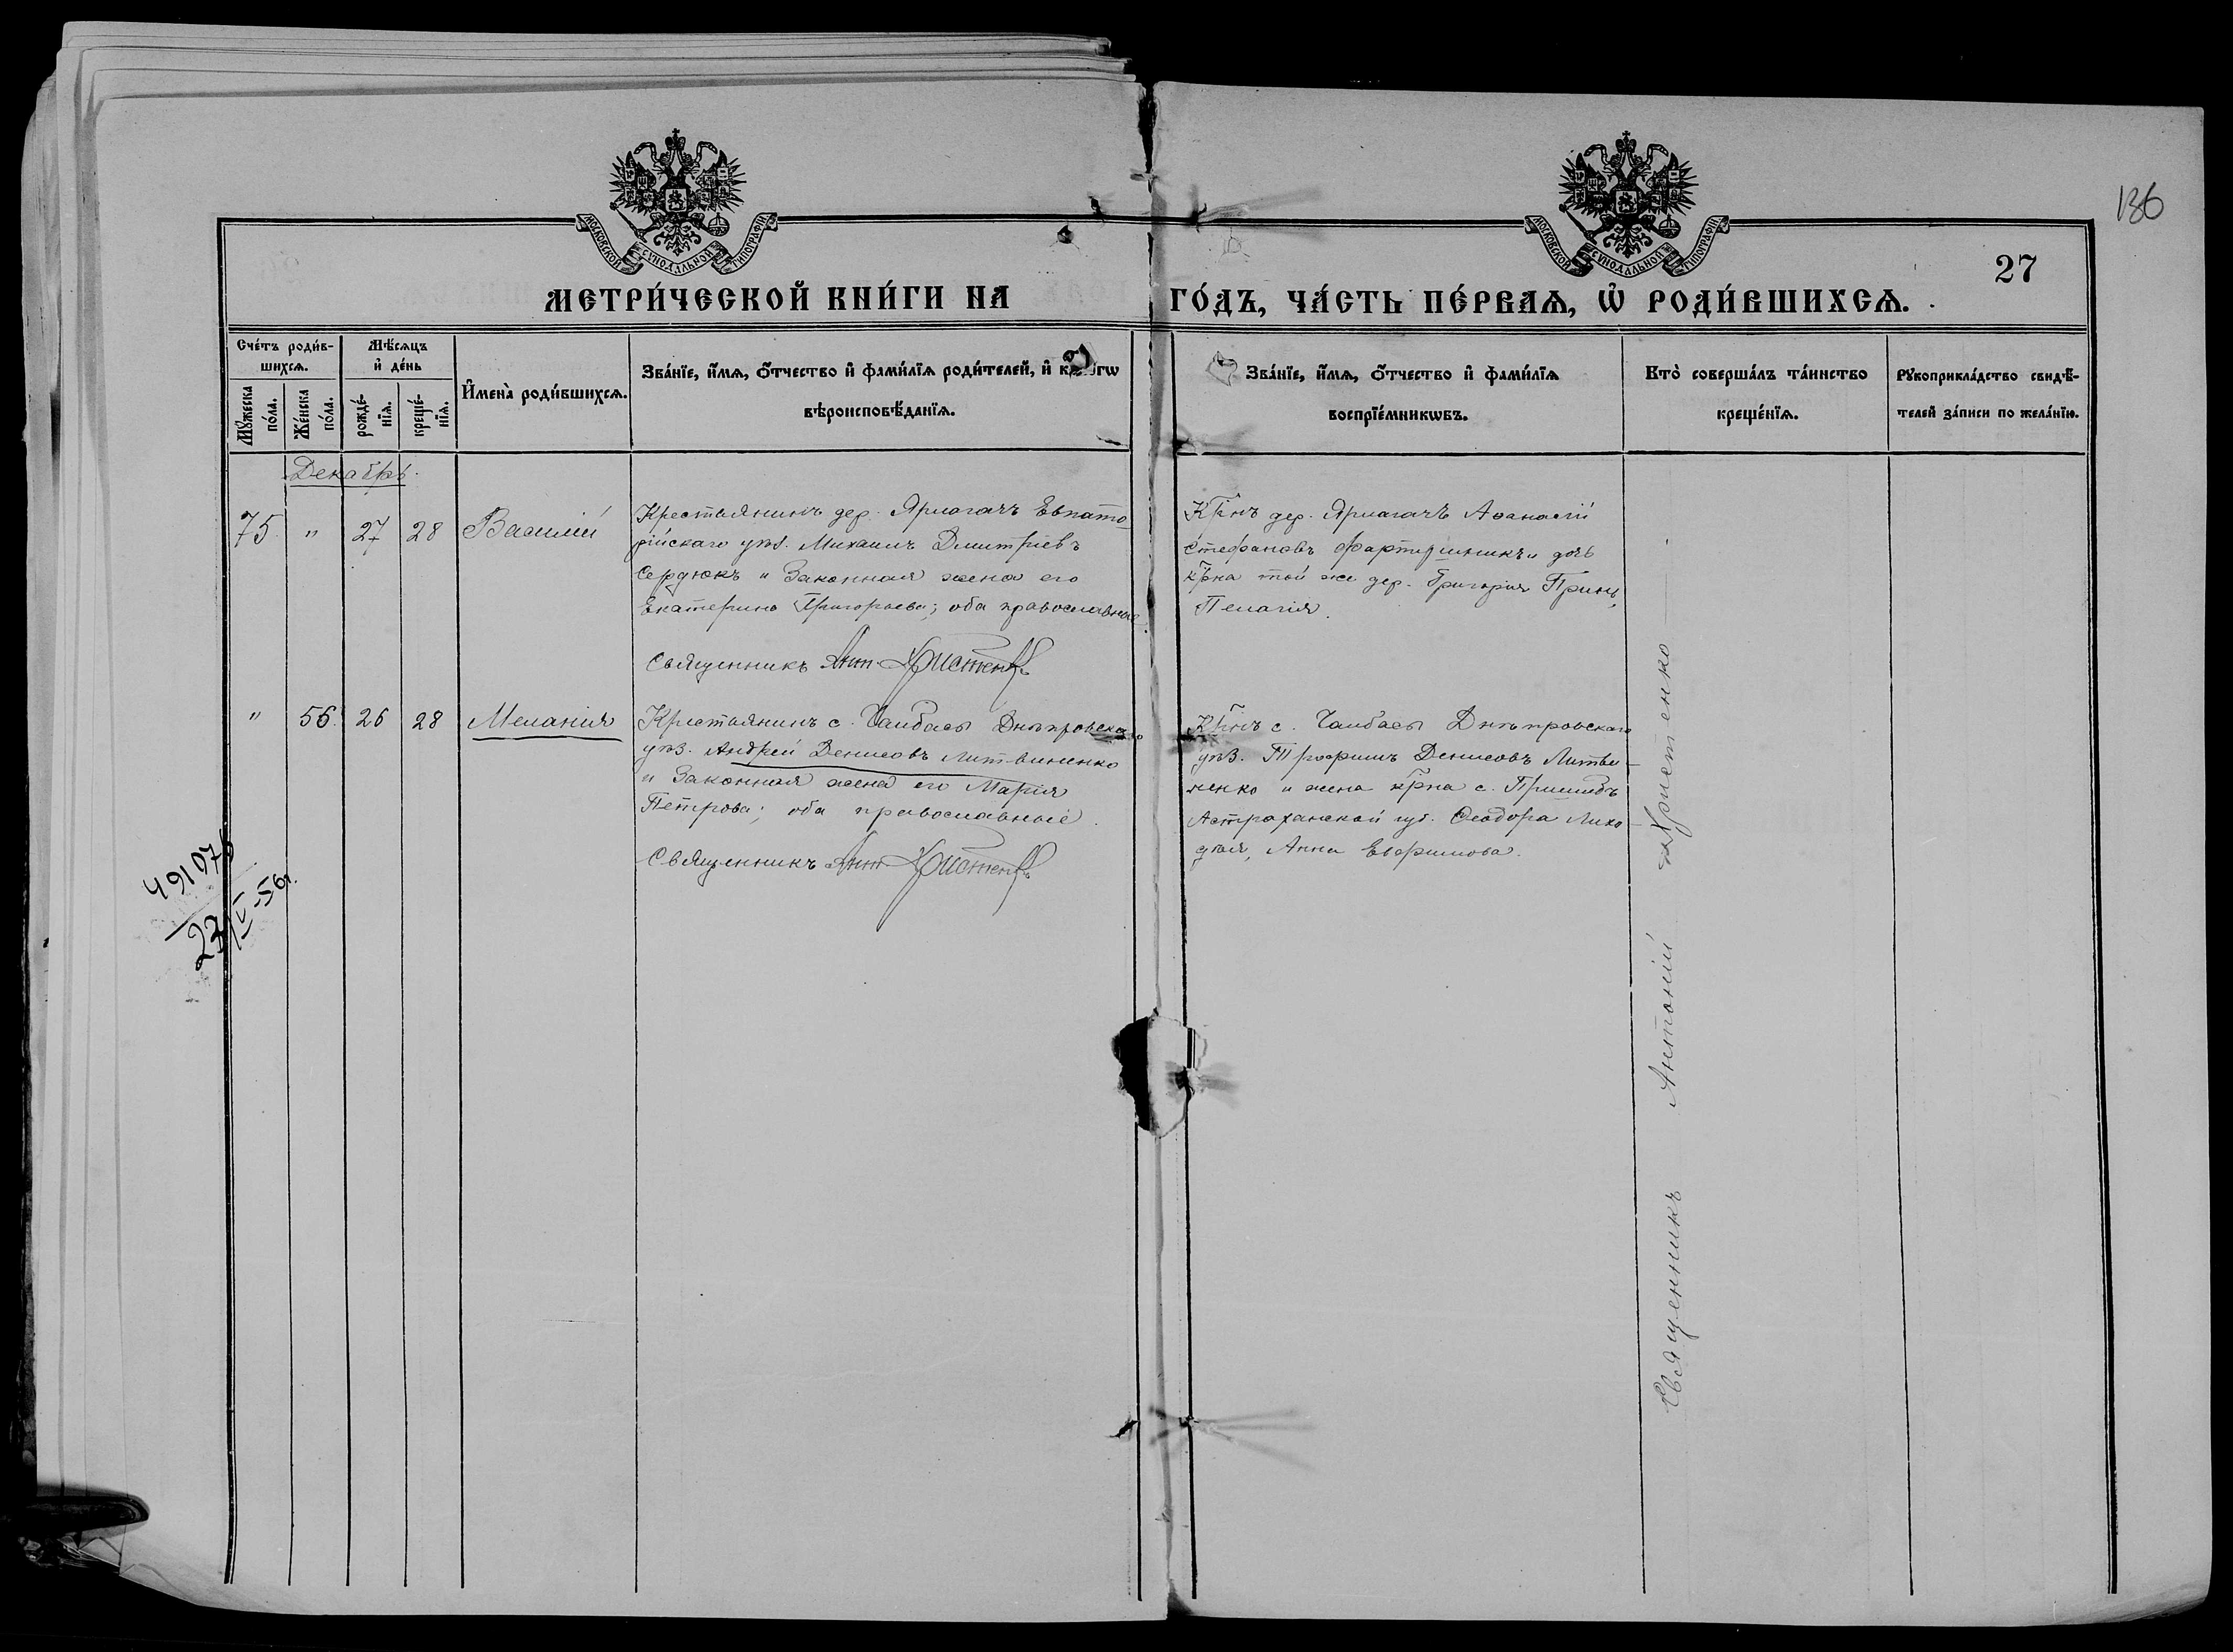 136
МОСКОВСКОЙ СУНОДАЛЬНОЙ ТИПОГРАФІИ
МОСКОВСКОЙ СУНОДАЛЬНОЙ ТИПОГРАФІИ
27
МЕТРИ́ЧЕСКОЙ КНИ́ГИ НА
ГО́ДЪ, ЧА́СТЬ ПЕ́РВАѦ, Ѡ҆ РОДИ́ВШИХСѦ.
Сче́тъ роди́в-
шихсѧ.
Мꙋ́жеска
по́ла.
Же́нска
по́ла.
Мѣ́сѧцъ
и҆ де́нь
рожде́-
нїѧ.
креще́-
нїѧ.
И҆мена̀ роди́вшихсѧ.
Зва́нїе, и҆́мѧ, ѻ҆́тчество и҆ фами́лїѧ роди́телей, и҆
вѣроисповѣ́данїѧ.
Зва́нїе, и҆́мѧ, ѻ҆́тчество и҆ фами́лїѧ
воспрїе́мникѡвъ.
Кто̀ соверша́лъ та́инство
креще́нїѧ.
Рꙋкоприкла́дство свидѣ́-
телей за́писи по жела́нїю.
Декабрь.
75 " 27 28 Василій
Крестьянинъ дер. Ярлагачъ Евпато-
рійскаго уѣз. Михаилъ Дмитріевъ
Сердюкъ и Законная жена его
Екатерина Григорьева; оба православные.
Священникъ Ант. Христенко
Кр̃нъ дер. Ярлагачъ Аѳанасій
Стефановъ и дочь
кр̃на той же дер. Григорія
Пелагія.
" 56. 26 28 Меланія
Крестьянинъ с. Чалбасы Днѣпровскаго
уѣз. Андрей Денисовъ Литвиненко
и Законная жена его Марія
Петрова; оба православные.
Священникъ Ант. Христенко
Кр̃нъ с. Чалбасы Днѣпровскаго
уѣз. Трофимъ Денисовъ Литви-
ненко и жена кр̃на с. Пришибъ
Астраханской губ. Ѳеодора Лихо-
дѣя, Анна Евфимова.
Священникъ Антоній Христенко
27/IV-56г.